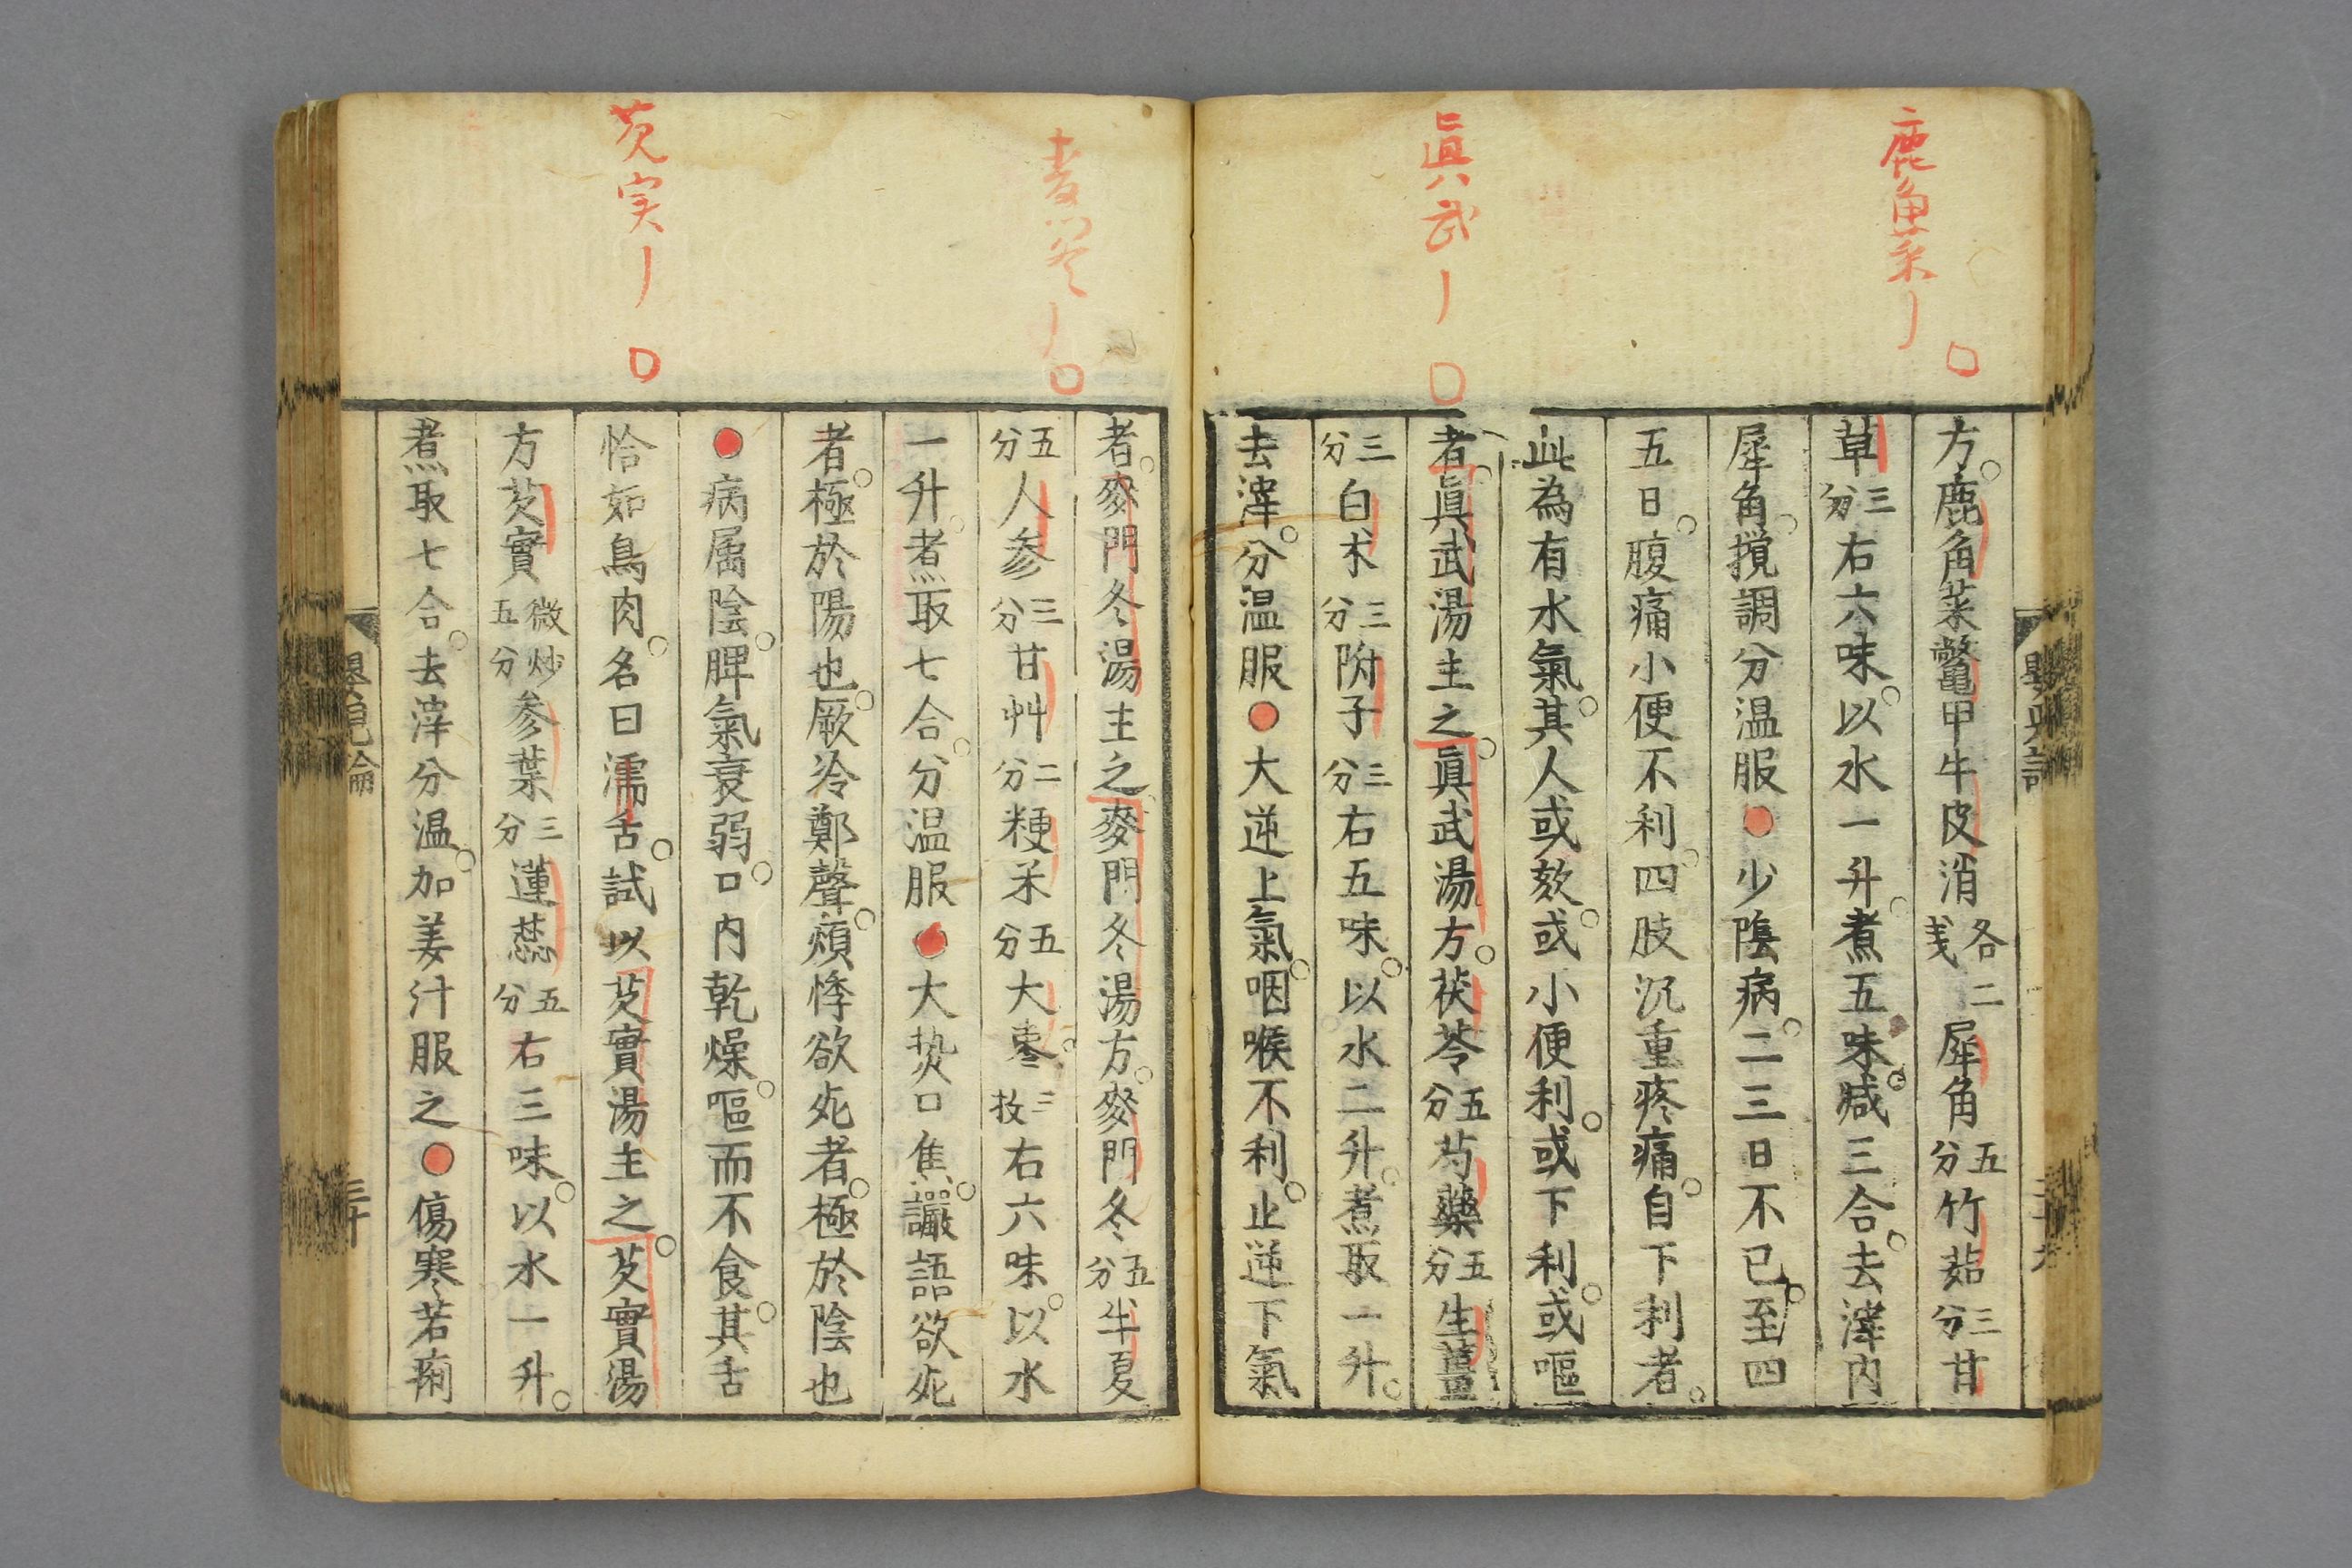 鹿角菜丿
眞武丿
方鹿角菜鼈甲牛皮消各二戔犀角五分竹茹三分甘
草三分右六味以水一升煮五味減三合去滓内
犀角攪調分温服●少陰病二三日不已至四
五日腹痛小便不利四肢沉重疼痛自下利者
此為有水氣其人或欬或小便利或下利或嘔
者眞武湯主之眞武湯方茯苓五分芍藥五分生薑
三分白朮三分附子三分右五味以水二升煮取一升
去滓分温服●大逆上氣咽喉不利止逆下氣
芡実丿
者麥門冬湯主之麥門冬湯方麥門冬五分半夏
五分人参三分甘艸二分粳米五分大棗三枚右六味以水
一升煮取七合分温服●大热口焦讝語欲死
者極於陽也厥冷鄭聲煩悸欲死者極於陰也
●病属陰脾氣衰弱口内乾燥嘔而不食其舌
恰如鳥肉名曰濡舌試以芡實湯主之芡實湯
方芡實微炒五分参葉三分蓮蕊五分右三味以水一升
煮取七合去滓分温加姜汁服之●傷寒若痢